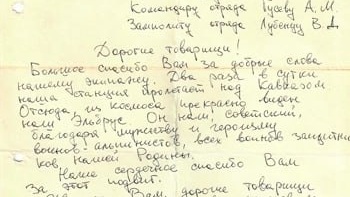 Командиру отряда Гусеву А. М.
Замполиту отряда Лубенцу В Д
Дорогие товарищи!
Большое спасибо Вам за добрые слова
нашему экипажу. Два раза в сутки
наша станция пролетает над Кавказом
Отсюда из космоса прекрасно виден
нам Эльбрус Он нам, советский,
благодаря мужеству и героизму
воинов-альпинистов, всех воинов защитни
ков, нашей Родины.
Наше сердечное спасибо Вам
За этот подвиг.
Вам, дорогие товарищи